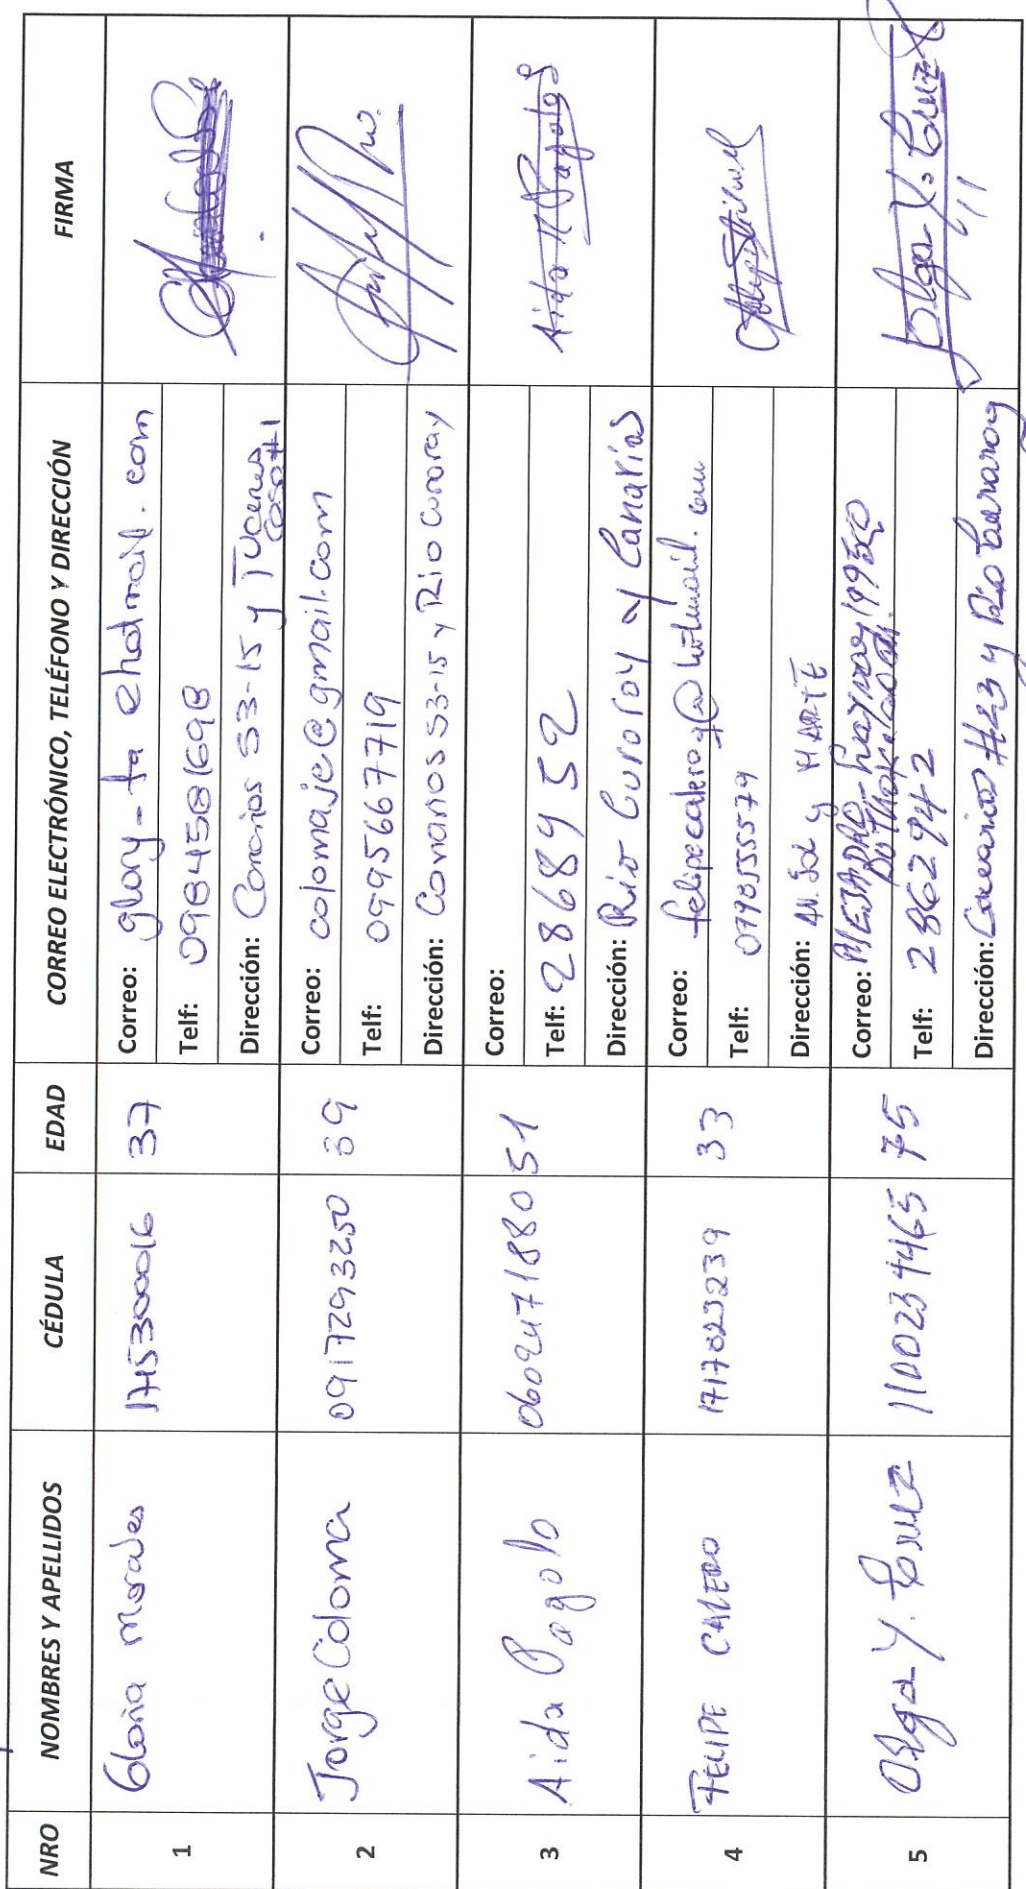 NRO NOMBRES Y APELLIDOS CÉDULA EDAD CORREO ELECTRÓNICO, TELÉFONO Y DIRECCIÓN FIRMA
1 Gloria Morales 1715300016 37
Correo: glory-fa@hotmail.com
Telf: 0984581698
Dirección: Canarios S3-15 y Tucanes
casa #1
2 Jorge Coloma 0917293250 39
Correo: colomaje@gmail.com
Telf: 0995667719
Dirección: Canarios S3-15 y Rio Curaray
3 Aida Pagalo 0602471880 51
Correo:
Telf: 2868952
Dirección: Río Curaray y Canarios
Aida Pagalo
4 FELIPE CALERO 33
Correo: @hotmail.com
Telf:
Dirección: AV. Sol y MARTE
5 Olga Y. Cruz 1100234465 75
Correo:
Telf: 2862942
Dirección: Canarios #23 y Río Curaray
Olga Y. Cruz